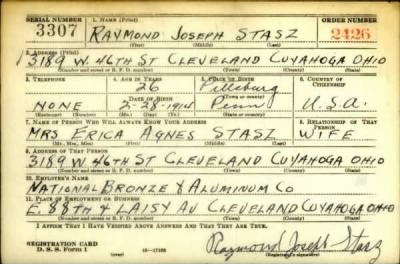 SERIAL NUMBER 1. NAME (Print) ORDER NUMBER
3307 RAYMOND JOSEPH STASZ 2426
(First) (Middle) (Last)
2. ADDRESS (Print)
3189 W. 46TH ST CLEVELAND CUYAHOGA OHIO
(Number and street or R. F. D. number) (Town) (County) (State)
3. TELEPHONE 4. AGE IN YEARS 5. PLACE OF BIRTH 6. COUNTRY OF CITIZENSHIP
26 Pittsburg
DATE OF BIRTH (Town or county)
NONE 2-28-1914 Penn U.S.A.
(Exchange) (Number) (Mo.) (Day) (Yr.) (State or country)
7. NAME OF PERSON WHO WILL ALWAYS KNOW YOUR ADDRESS 8. RELATIONSHIP OF THAT PERSON
MRS ERICA AGNES STASZ WIFE
(Mr., Mrs., Miss) (First) (Middle) (Last)
9. ADDRESS OF THAT PERSON
3189 W. 46TH ST CLEVELAND CUYAHOGA OHIO
(Number and street or R. F. D. number) (Town) (County) (State)
10. EMPLOYER'S NAME
NATIONAL BRONZE & ALUMINUM CO
11. PLACE OF EMPLOYMENT OR BUSINESS
E. 88TH & LAISY AV CLEVELAND CUYAHOGA OHIO
(Number and street or R. F. D. number) (Town) (County) (State)
I AFFIRM THAT I HAVE VERIFIED ABOVE ANSWERS AND THAT THEY ARE TRUE.
REGISTRATION CARD
D. S. S. Form 1 16-17105 Raymond Joseph Stasz
(Registrant's signature)